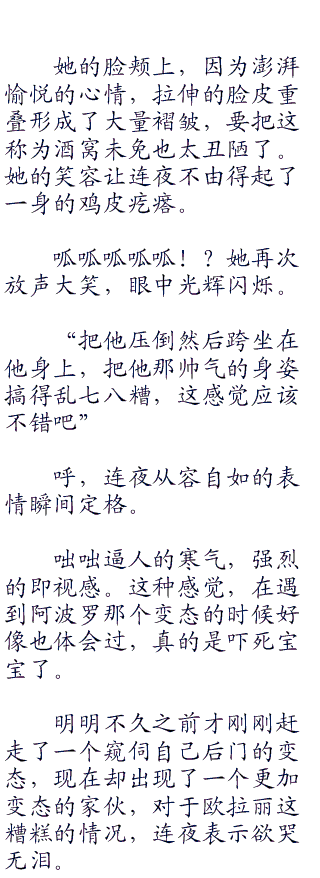 她的脸颊上，因为澎湃
愉悦的心情，拉伸的脸皮重
叠形成了大量褶皱，要把这
称为酒窝未免也太丑陋了。
她的笑容让连夜不由得起了
一身的鸡皮疙瘩。
呱呱呱呱呱！？她再次
放声大笑，眼中光辉闪烁。
“把他压倒然后跨坐在
他身上，把他那帅气的身姿
搞得乱七八糟，这感觉应该
不错吧”
呼，连夜从容自如的表
情瞬间定格。
咄咄逼人的寒气，强烈
的即视感。这种感觉，在遇
到阿波罗那个变态的时候好
像也体会过，真的是吓死宝
宝了。
明明不久之前才刚刚赶
走了一个窥伺自己后门的变
态，现在却出现了一个更加
变态的家伙，对于欧拉丽这
糟糕的情况，连夜表示欲哭
无泪。